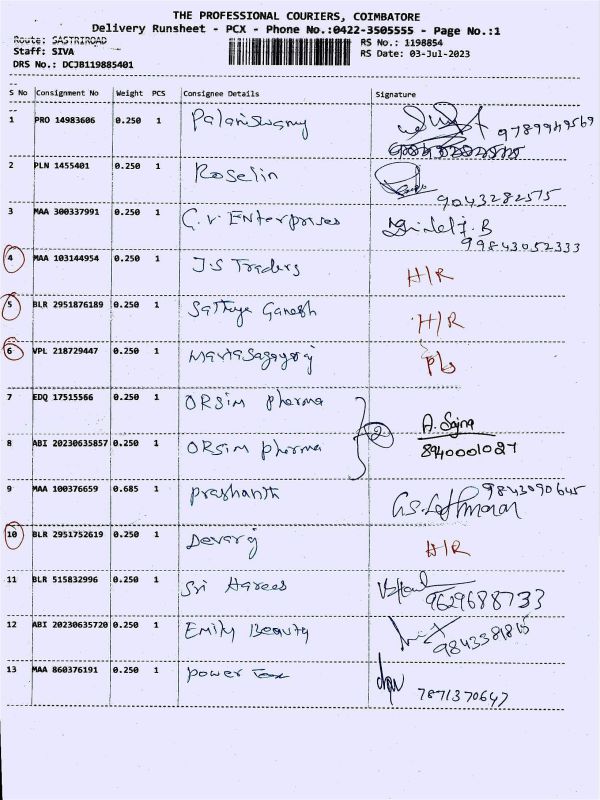 THE PROFESSIONAL COURIERS, COIMBATORE
Delivery Runsheet - PCX - Phone No.:0422-3505555 - Page No.:1
Route: SASTRIROAD
RS No.: 1198854
Staff: SIVA
RS Date: 03-Jul-2023
DRS No.: DCJB119885401
S No Consignment No Weight PCS Consignee Details Signature
1 PRO 14983606 0.250 1 Palaniswamy 9789949569
2 PLN 1455401 0.250 1 Roselin 9043282575
3 MAA 300337991 0.250 1 G.V. Enterprises 99843052333
4 MAA 103144954 0.250 1 J.S Traders H/R
5 BLR 2951876189 0.250 1 Sathya Ganesh H/R
6 VPL 218729447 0.250 1
7 EDQ 17515566 0.250 1 ORSim pharma
2 A. Sajna
8 ABI 20230635857 0.250 1 ORSim pharma 8940001027
9 MAA 100376659 0.685 1 prashanth 9843090645
10 BLR 2951752619 0.250 1 Devaraj H/R
11 BLR 515832996 0.250 1 Sri Harees 9629688733
12 ABI 20230635720 0.250 1 Emily Beauty 9843381815
13 MAA 860376191 0.250 1 power Tax 7871370647